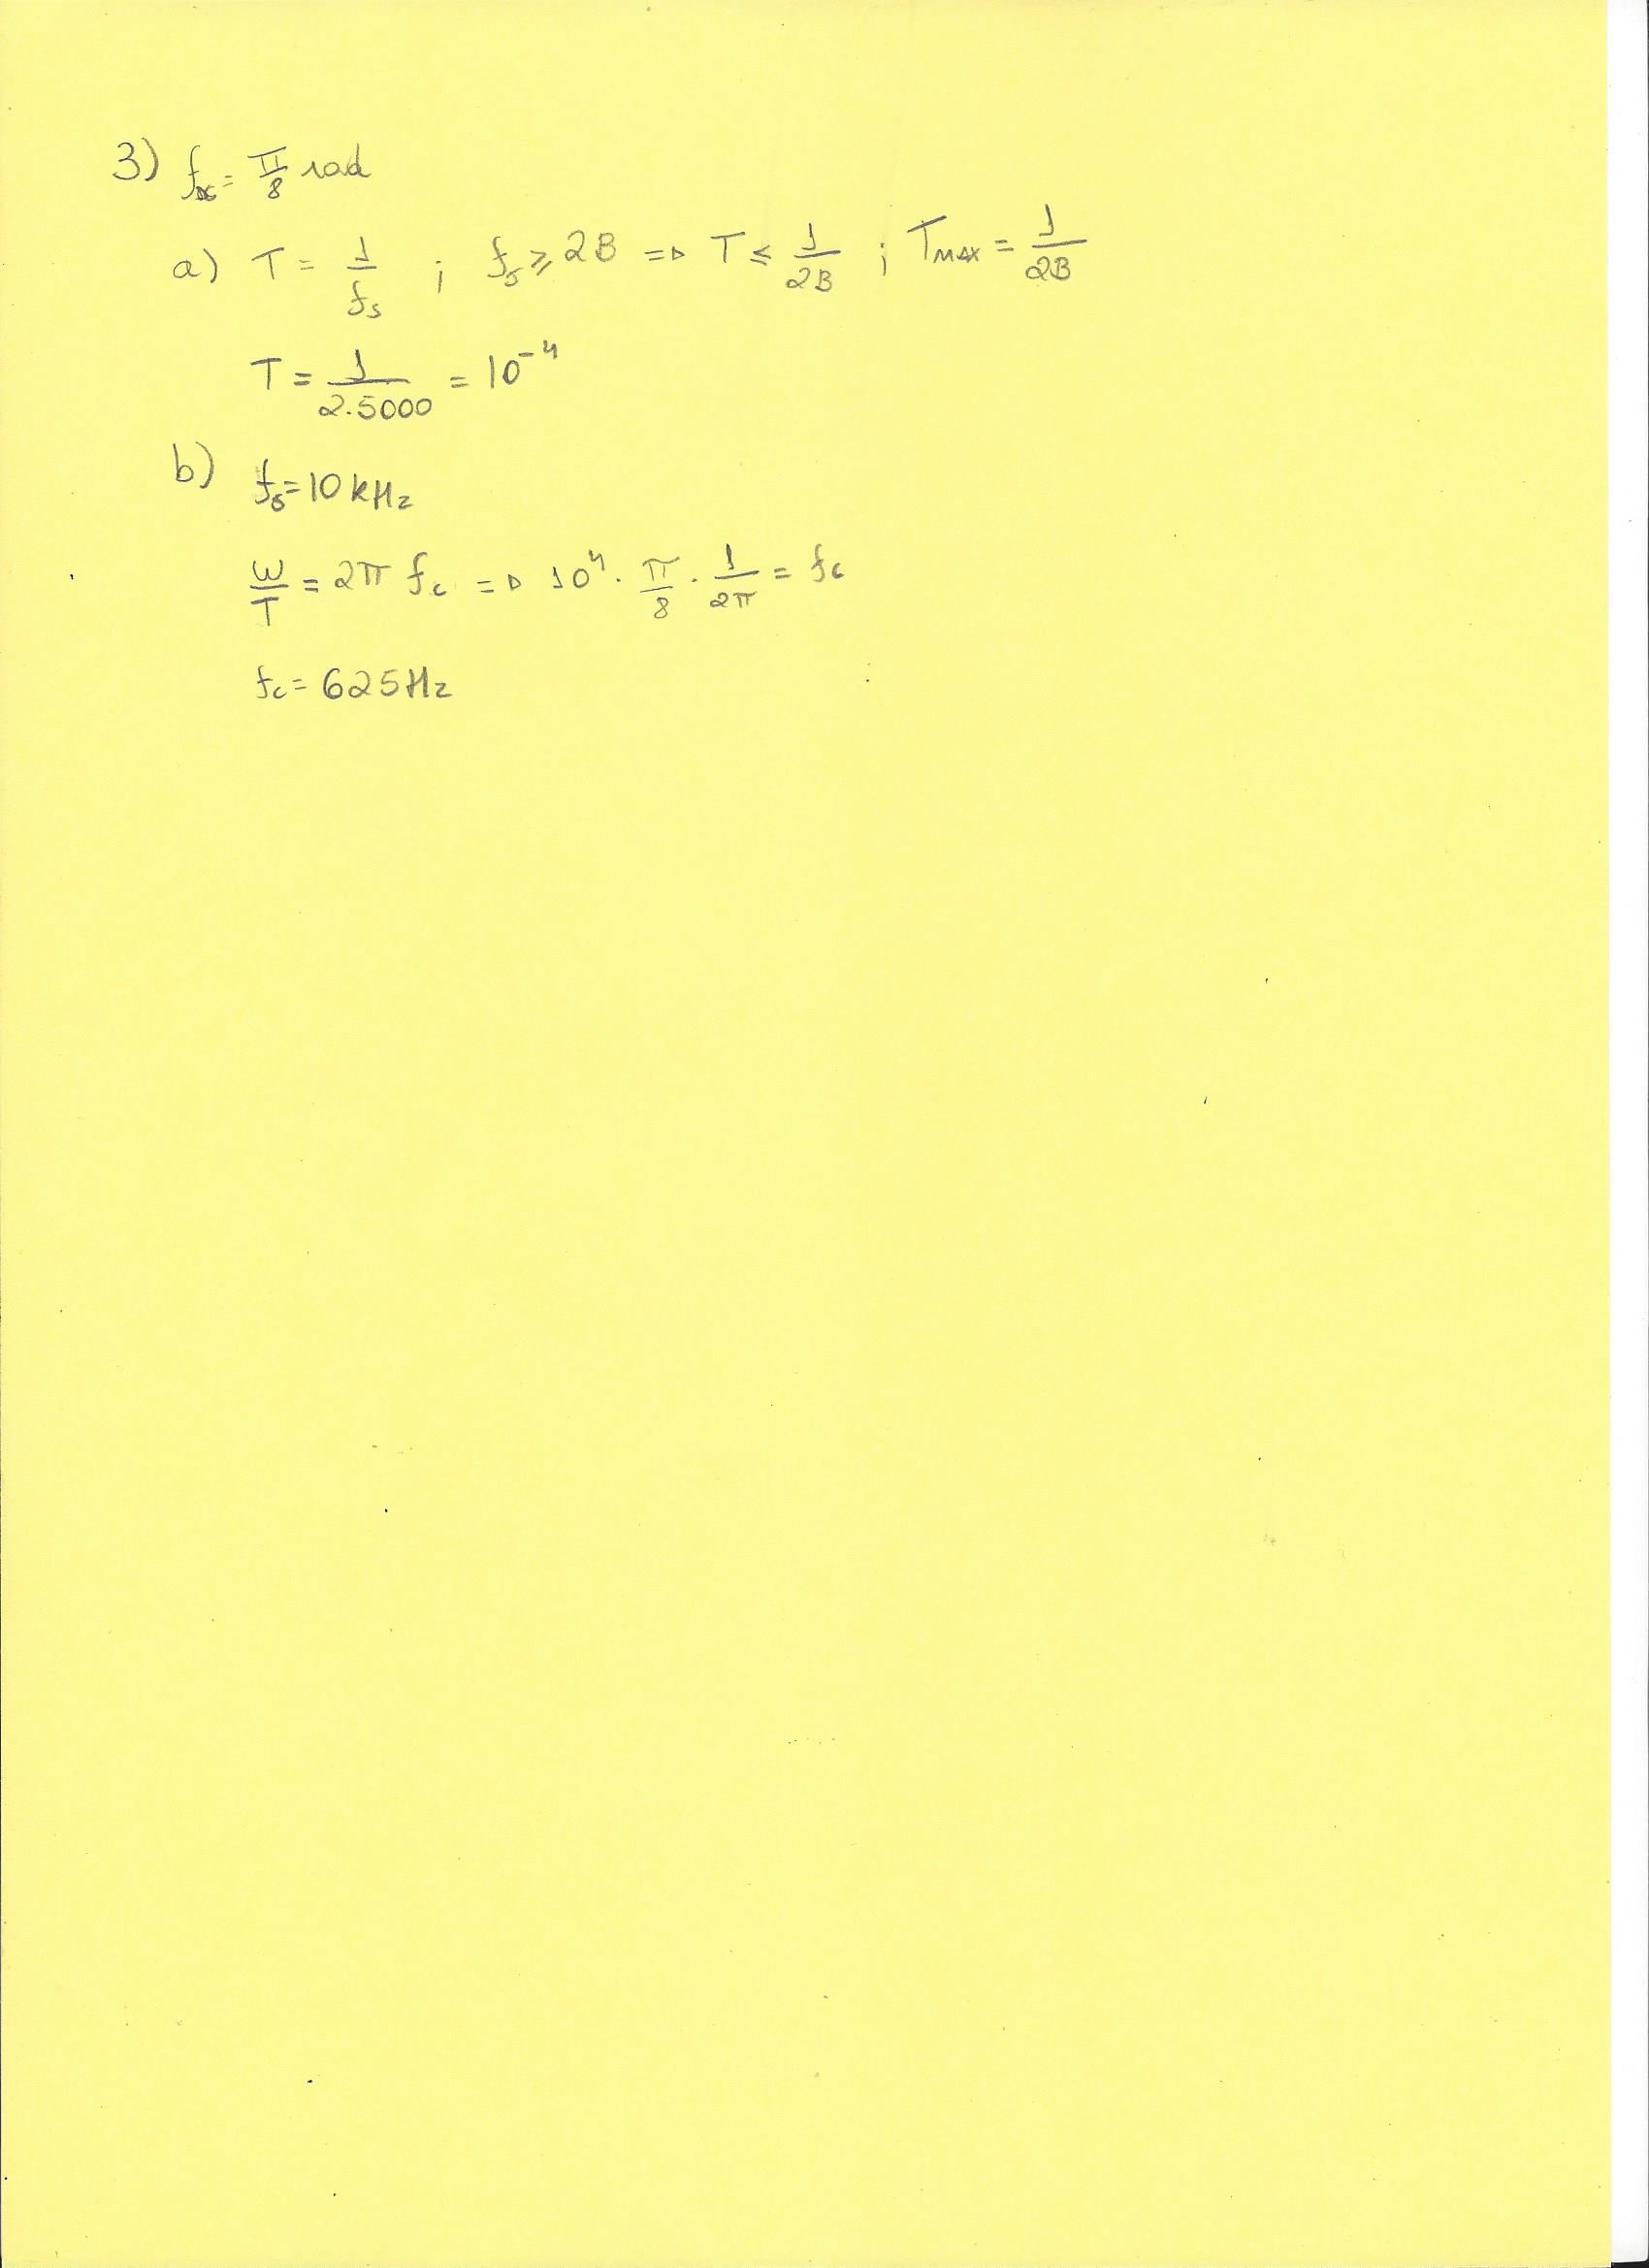 3) f_DC = π/8 rad
a) T = 1/f_s ; f_s ≥ 2B => T ≤ 1/2B ; T_MAX = 1/2B
T = 1/2.5000 = 10^-4
b) f_s = 10 kHz
ω/T = 2π f_c => 10^4 . π/8 . 1/2π = f_c
f_c = 625 Hz